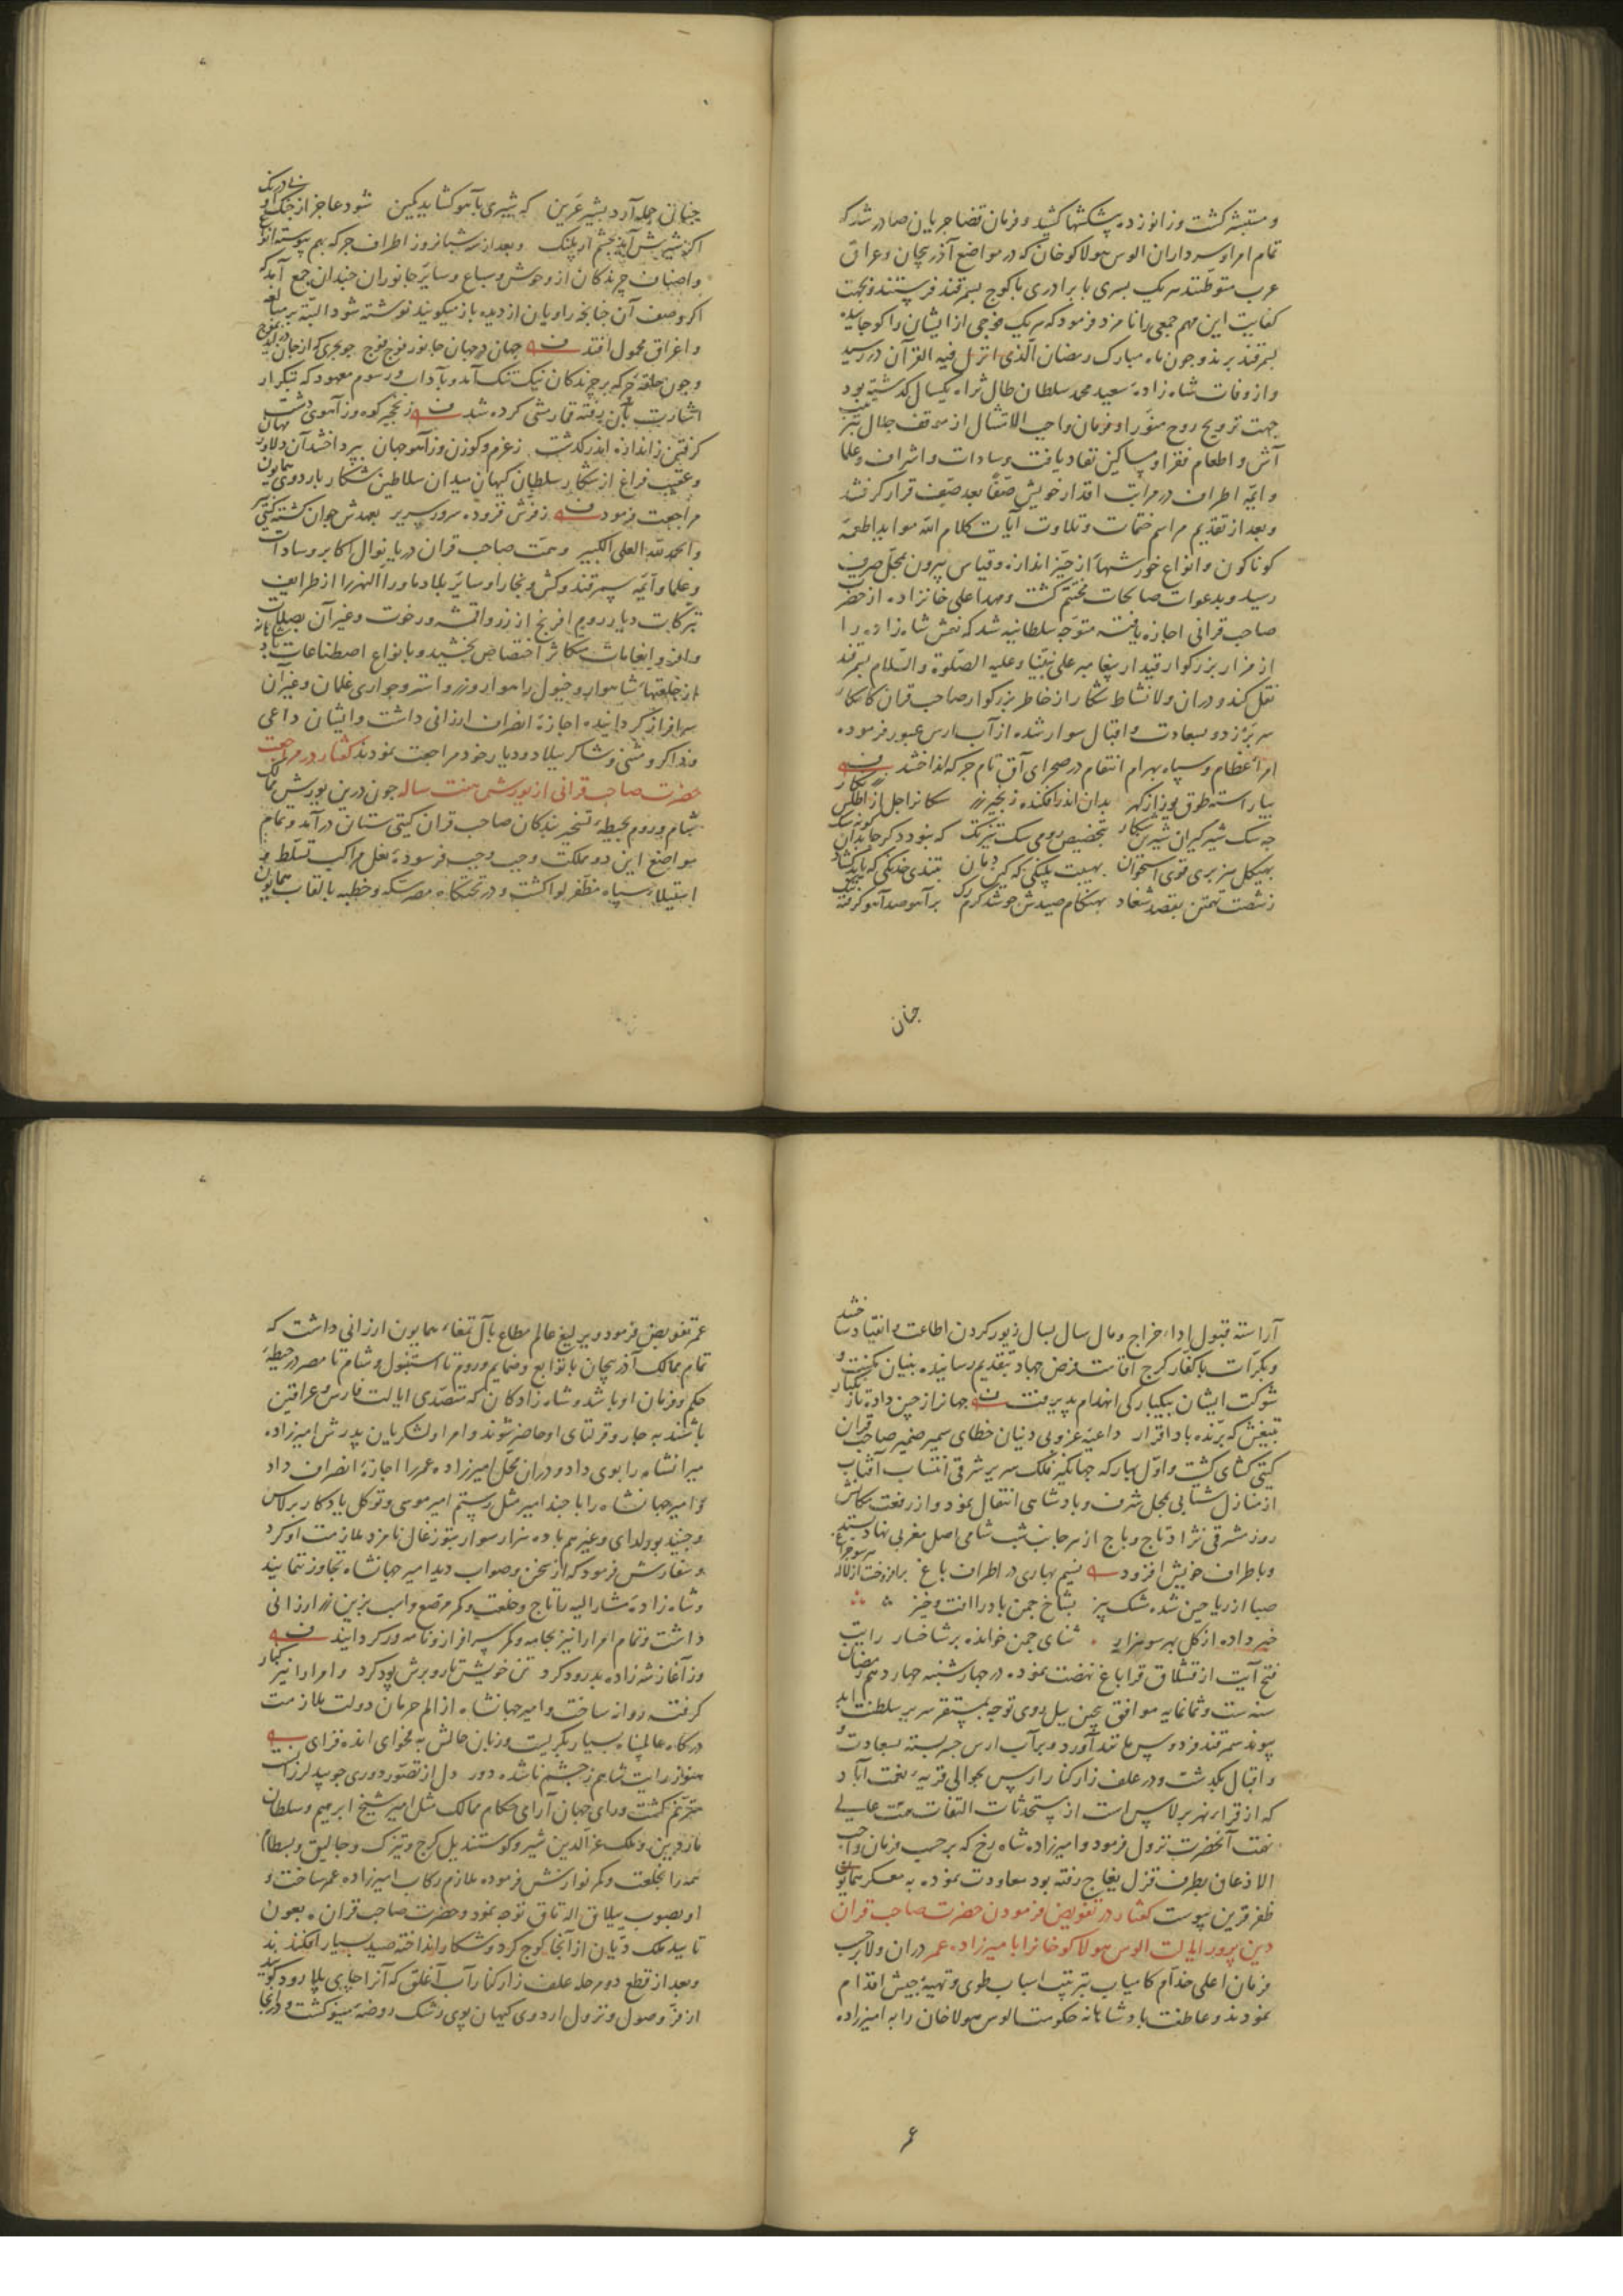 و مستبشر گشت و زانو زده پیشکشها کشید و فرمان قضا جریان صادر شد که
تمام امرا و سرداران الوس هولاکو خان که در مواضع آذربیجان و عراق
عرب متوطنند هر یک پسری یا برادری با کوچ بسمرقند فرستند و بجهت
کفایت این مهم جمعی را نامزد فرمود که هر یک فوجی از ایشان را کوچانیده
بسمرقند برند و چون ماه مبارک رمضان الذی انزل فیه القرآن در رسید
و از وفات شاه زاده سعید محمد سلطان طال ثراه یکسال گذشته بود
جهت ترویح روح منور او فرمان واجب الامتثال از موقف جلال
آش و اطعام فقرا و مساکین نفاد یافت و سادات و اشراف و علما
و ایمه اطراف در مراتب اقدار خویش صفا بعد صف قرار گرفتند
و بعد از تقدیم مراسم ختمات و تلاوت آیات کلام الله مواید اطعمه
کوناکون و انواع خورشهاء از حیز اندازه و قیاس بیرون بمحل صرف
رسید و بدعوات صالحات مختتم گشت و مهد اعلی خانزاده از حضرت
صاحب قرانی اجازه یافته متوجه سلطانیه شد که نعش شاه زاده را
از مزار بزرکوار قیدار پیغامبر علی نبینا و علیه الصلوة والسلام بسمرقند
نقل کند و دران ولا نشاط شکار از خاطر بزرکوار صاحب قران کامکار
سر بر زد و بسعادت و اقبال سوار شده از آب ارس عبور فرموده
امراء عظام و سپاه بهرام انتقام در صحرای آق تام جرکه انداختند
بیاراسته طوق یوز از کهر بدان اندر افکنده زنجیر زر سکانرا جل از اطلس
چه سک شیرگیران شیر شکار بتخصیص رومی سک تیزتک که نبود دکر جا بدان
بهیکل هزبری قوی استخوان بهیبت پلنکی که کین دمان بتندی خدنکی که
ز شصت تهمتن بقصد شغاد بهنکام صیدش خوشد کرم برآهو صد آهو کرفته
چنان
چنان حمله آرد بشیر عرین که شیری بآهو کشاید کمین شود عاجز از جنک او
اکر شیر پیش آیدش بچشم ار پلنک و بعد از سه شبانروز اطراف جرکه بهم پیوسته انواع
و اصناف چرندکان از وحوش و سباع و سایر جانوران چندان جمع آمد که
اکر وصف آن چنانچه راویان از دیده باز میکویند نوشته شود البته بر مبالغه
و اغراق محمول افتد جهان در جهان جانور فوج فوج چو بحری که از جان
و چون حلقه جرکه بر چرندکان نیک تنک آمد و بآداب و رسوم معهود که تکرار
اشارت بآن رفته قمارمشی کرده شد ز نخچیر کوه و ز آهوی دشت
کرفتن ز اندازه اندر کذشت ز غرم و کوزن و ز آهو جهان بپرداختند آن دلاور مهان
و عقیب فراغ از شکار سلطان کیهان میدان سلاطین شکار باردوی همایون
مراجعت فرمود ز فرش فزوده سرور سریر بعهدش جوان کشته کیتی پیر
والحمد لله العلی الکبیر و همت صاحب قران دریا نوال اکابر و سادات
و علما و ائمه سمرقند و کش و بخارا و سایر بلاد ماوراء النهر را از ظرایف
تبرکات دیار روم افرنج از زر و اقمشه و رخوت و غیر آن بصلات
وافر و انعامات متکاثر اختصاص بخشید و بانواع اصطناعات
از خلعتهاء شاهوار و خیول راهوار و زر و استر و جواری غلمان و غیر آن
سرافراز کردانیده اجازه انصراف ارزانی داشت و ایشان داعی
و ذاکر و مثنی و شاکر ببلاد و دیار خود مراجعت نمودند کفتار در مراجعت
حضرت صاحب قرانی از یورش هفت ساله چون درین یورش ممالک
شام و روم بحیطه تسخیر بندکان صاحب قران کیتی ستان درآمد و تمام
مواضع این دو مملکت وجب وجب فرسوده نعل مراکب تسلط و
استیلاء سپاه مظفر لوا کشت و در تختکاه مصر سکه و خطبه بالقاب همایون
آراسته قبول اداء خراج و مال سال بسال زیور کردن اطاعت و انقیاد ساختند
و بکرات با کفار کرج اقامت فرض جهاد بتقدیم رسانیده بنیان مکنت و
شوکت ایشان بیکبارکی انهدام پذیرفت جهانرا ز چین داده تا زنکبار
بتیغش که برنده باد اقرار داعیه غزو بی دینان خطای سمیر ضمیر صاحب قران
کیتی کشای کشت و اول بهار که جهانکیر فلک سریر شرقی انتساب آفتاب
از منازل شتایی بمحل شرف و پادشاهی انتقال نمود و از رفعت مکانش
روز مشرقی نژاد تاج و باج از هر جانب شب شامی اصل مغربی نهاد
و باطراف خویش افزود نسیم بهاری در اطراف باغ برافروخت از لاله هر سو چراغ
صبا از ریاحین شده مشک بیز بشاخ چمن باد را افت و خیز
خبر داده از کل بهر سو هزار ثنای چمن خوانده بر شاخسار رایت
فتح آیت از قشلاق قراباغ نهضت نموده در چهارشنبه چهاردهم رمضان
سنه ست و ثمانمایه موافق پیچین ییل روی توجه بمستقر سریر سلطنت ابد
پیوند سمرقند فردوس مانند آورد و بر آب ارس جسر بسته بسعادت و
و اقبال بکذشت و در علف زار کنار ارس بحوالی قریه نعمت آباد
که از قراء نهر برلاس است از مستحدثات التفات همت عالی
نهمت آنحضرت نزول فرمود و امیرزاده شاه رخ که بر حسب فرمان واجب
الاذعان بطرف قزل یغاج رفته بود معاودت نموده به معسکر همایون
ظفر قرین پیوست کفتار در تفویض فرمودن حضرت صاحب قران
دین پرور ایالت الوس هولاکو خانرا بامیرزاده عمر دران ولا بر حسب
فرمان اعلی خدام کامیاب بترتیب اسباب طوی و تهییه جیش اقدام
نمودند و عاطفت پادشاهانه حکومت الوس هولاخان را به امیرزاده
عمر
عمر تفویض فرمود و یرلیغ عالم مطاع بآل تمغاء همایون ارزانی داشت که
تمام ممالک آذربیجان با توابع و ضمایم و روم تا استنبول و شام تا مصر در حیطه
حکم و فرمان او باشد و شاه زادکان که متصدی ایالت فارس و عراقین
باشند به جار و قرلتای او حاضر شوند و امرا و لشکریان پدرش امیرزاده
میرانشاه را بوی داد و دران محل امیرزاده عمر را اجازه انصراف داد
و امیر جهانشاه را با چند امیر مثل رستم امیر موسی و توکل یادکار برلاس
و جنید بورلدای و غیرهم با ده هزار سوار بتوزغال نامزد ملازمت او کرد
و سفارش فرمود که از سخن و صواب دید امیر جهانشاه تجاوز ننمایند
و شاه زاده مشار الیه را تاج و خلعت و کمر مرصع و اسب بزین زر ارزانی
داشت و تمام امرا را نیز بجامه و کمر سرافراز و نامور کردانید
در آغاز شه زاده بدرود کرد تن خویش تار و برش پود کرد و امرا را نیز کنار
کرفته روانه ساخت و امیر جهانشاه از الم حرمان دولت ملازمت
درکاه عالم پناه بسیار بکریست و زبان حالش به فحوای انده فزای
هنوز رایت شاهم ز چشم ناشده دور دل از تصور دوری چو بید لرزانست
مترنم کشت و رای جهان آرای حکام ممالک مثل امیر شیخ ابرهیم و سلطان
ماردین و ملک عزالدین شیر و کوستندیل کرج و تیزک و جالیق و بسطام
همه را بخلعت و کمر نوازش فرموده ملازم رکاب امیرزاده عمر ساخت و
او بصوب ییلاق اله تاق توجه نمود و حضرت صاحب قران بعون
تایید ملک دیان از آنجا کوچ کرد و شکار انداخته صید بسیار افکندند
و بعد از قطع دو مرحله علف زار کنار آب آغلق که آنرا چای پلا رود کویند
از فر وصول و نزول اردوی کیهان پوی رشک روضه مینو کشت و در آنجا